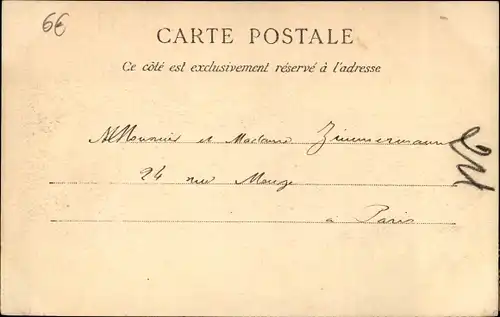 6€
CARTE POSTALE
Ce côté est exclusivement réservé à l'adresse
Monsieur et Madame Zimmermann
24 rue Monge
à Paris